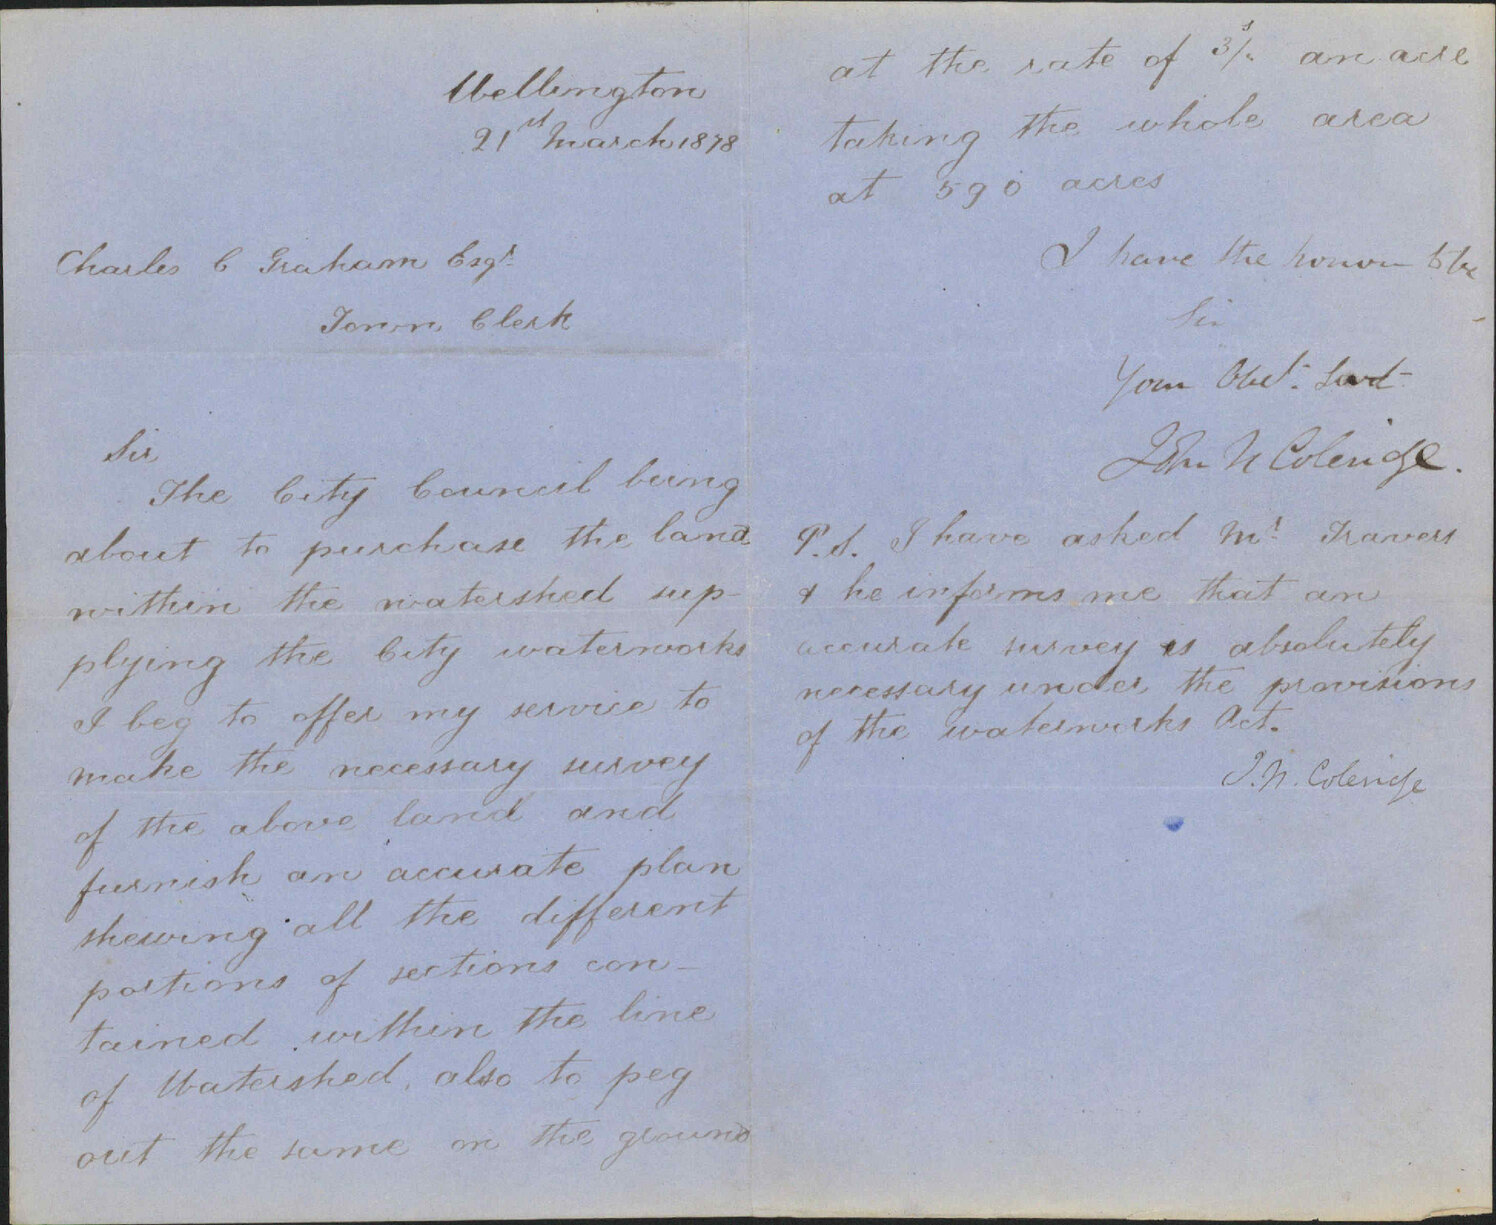 Wellington
21st March 1878
Charles C Graham Esqr.
Town Clerk
Sir
The City Council being
about to purchase the land
within the watershed sup-
plying the City waterworks
I beg to offer my service to
make the necessary survey
of the above land and
furnish an accurate plan
shewing all the different
portions of sections con-
tained within the line
of Watershed, also to peg
out the same on the ground
at the rate of 3s/. an acre
taking the whole area
at 590 acres
I have the honour to be
Sir
Your Obedt. Servt
John N Coleridge.
P.S. I have asked Mr. Travers
& he informs me that an
accurate survey is absolutely
necessary under the provisions
of the waterworks Act.
J. N. Coleridge